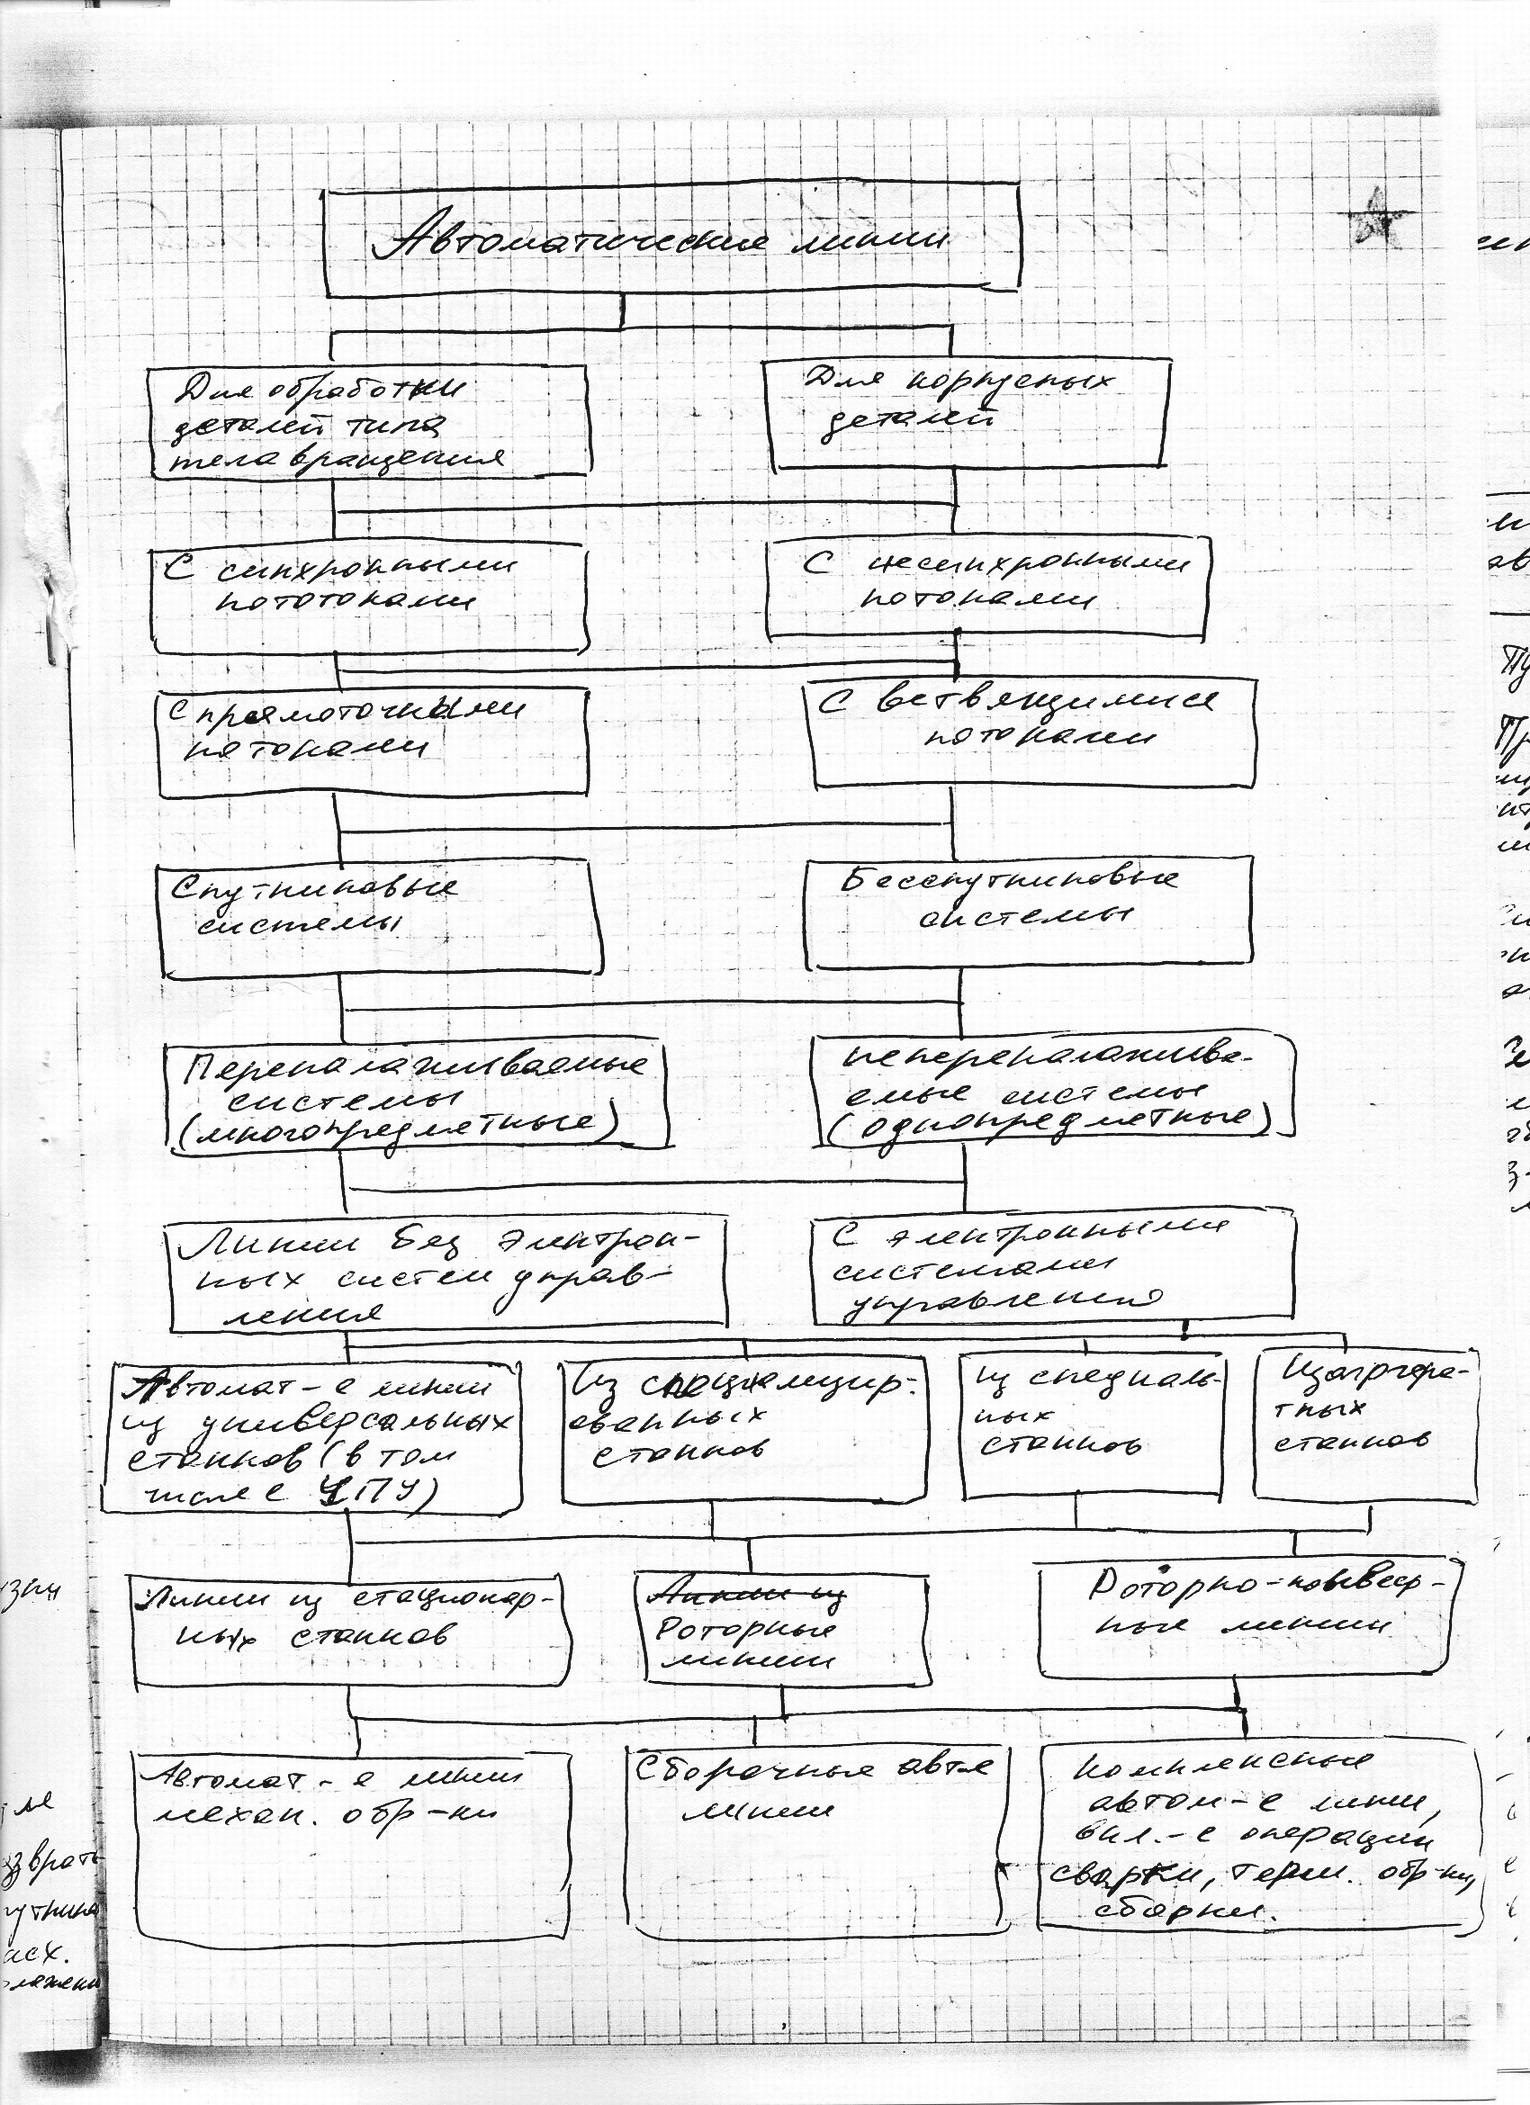 Автоматические линии
Для обработки
деталей типа
тела вращения
Для корпусных
деталей
С синхронными
пототоками
С несинхронными
потоками
С прямоточными
потоками
С ветвящимися
потоками
Спутниковые
системы
Бесспутниковые
системы
Переналаживаемые
системы
(многопредметные)
непереналажива-
емые системы
(однопредметные)
Линии без электрон-
ных систем управ-
ления
С электронными
системами
управления
Автомат-е линии
из универсальных
станков (в том
числе с ЧПУ)
Из специализир-
ованных
станков
из специаль-
ных
станков
Из агрега-
тных
станков
Линии из стационар-
ных станков
Линии из
Роторные
линии
Роторно-конвеер-
ные линии
Автомат-е линии
механ. обр-ки
Сборочные авт-е
линии
Комплексные
автом-е линии,
вкл.-е операции
сварки, терм. обр-ки,
сборки.